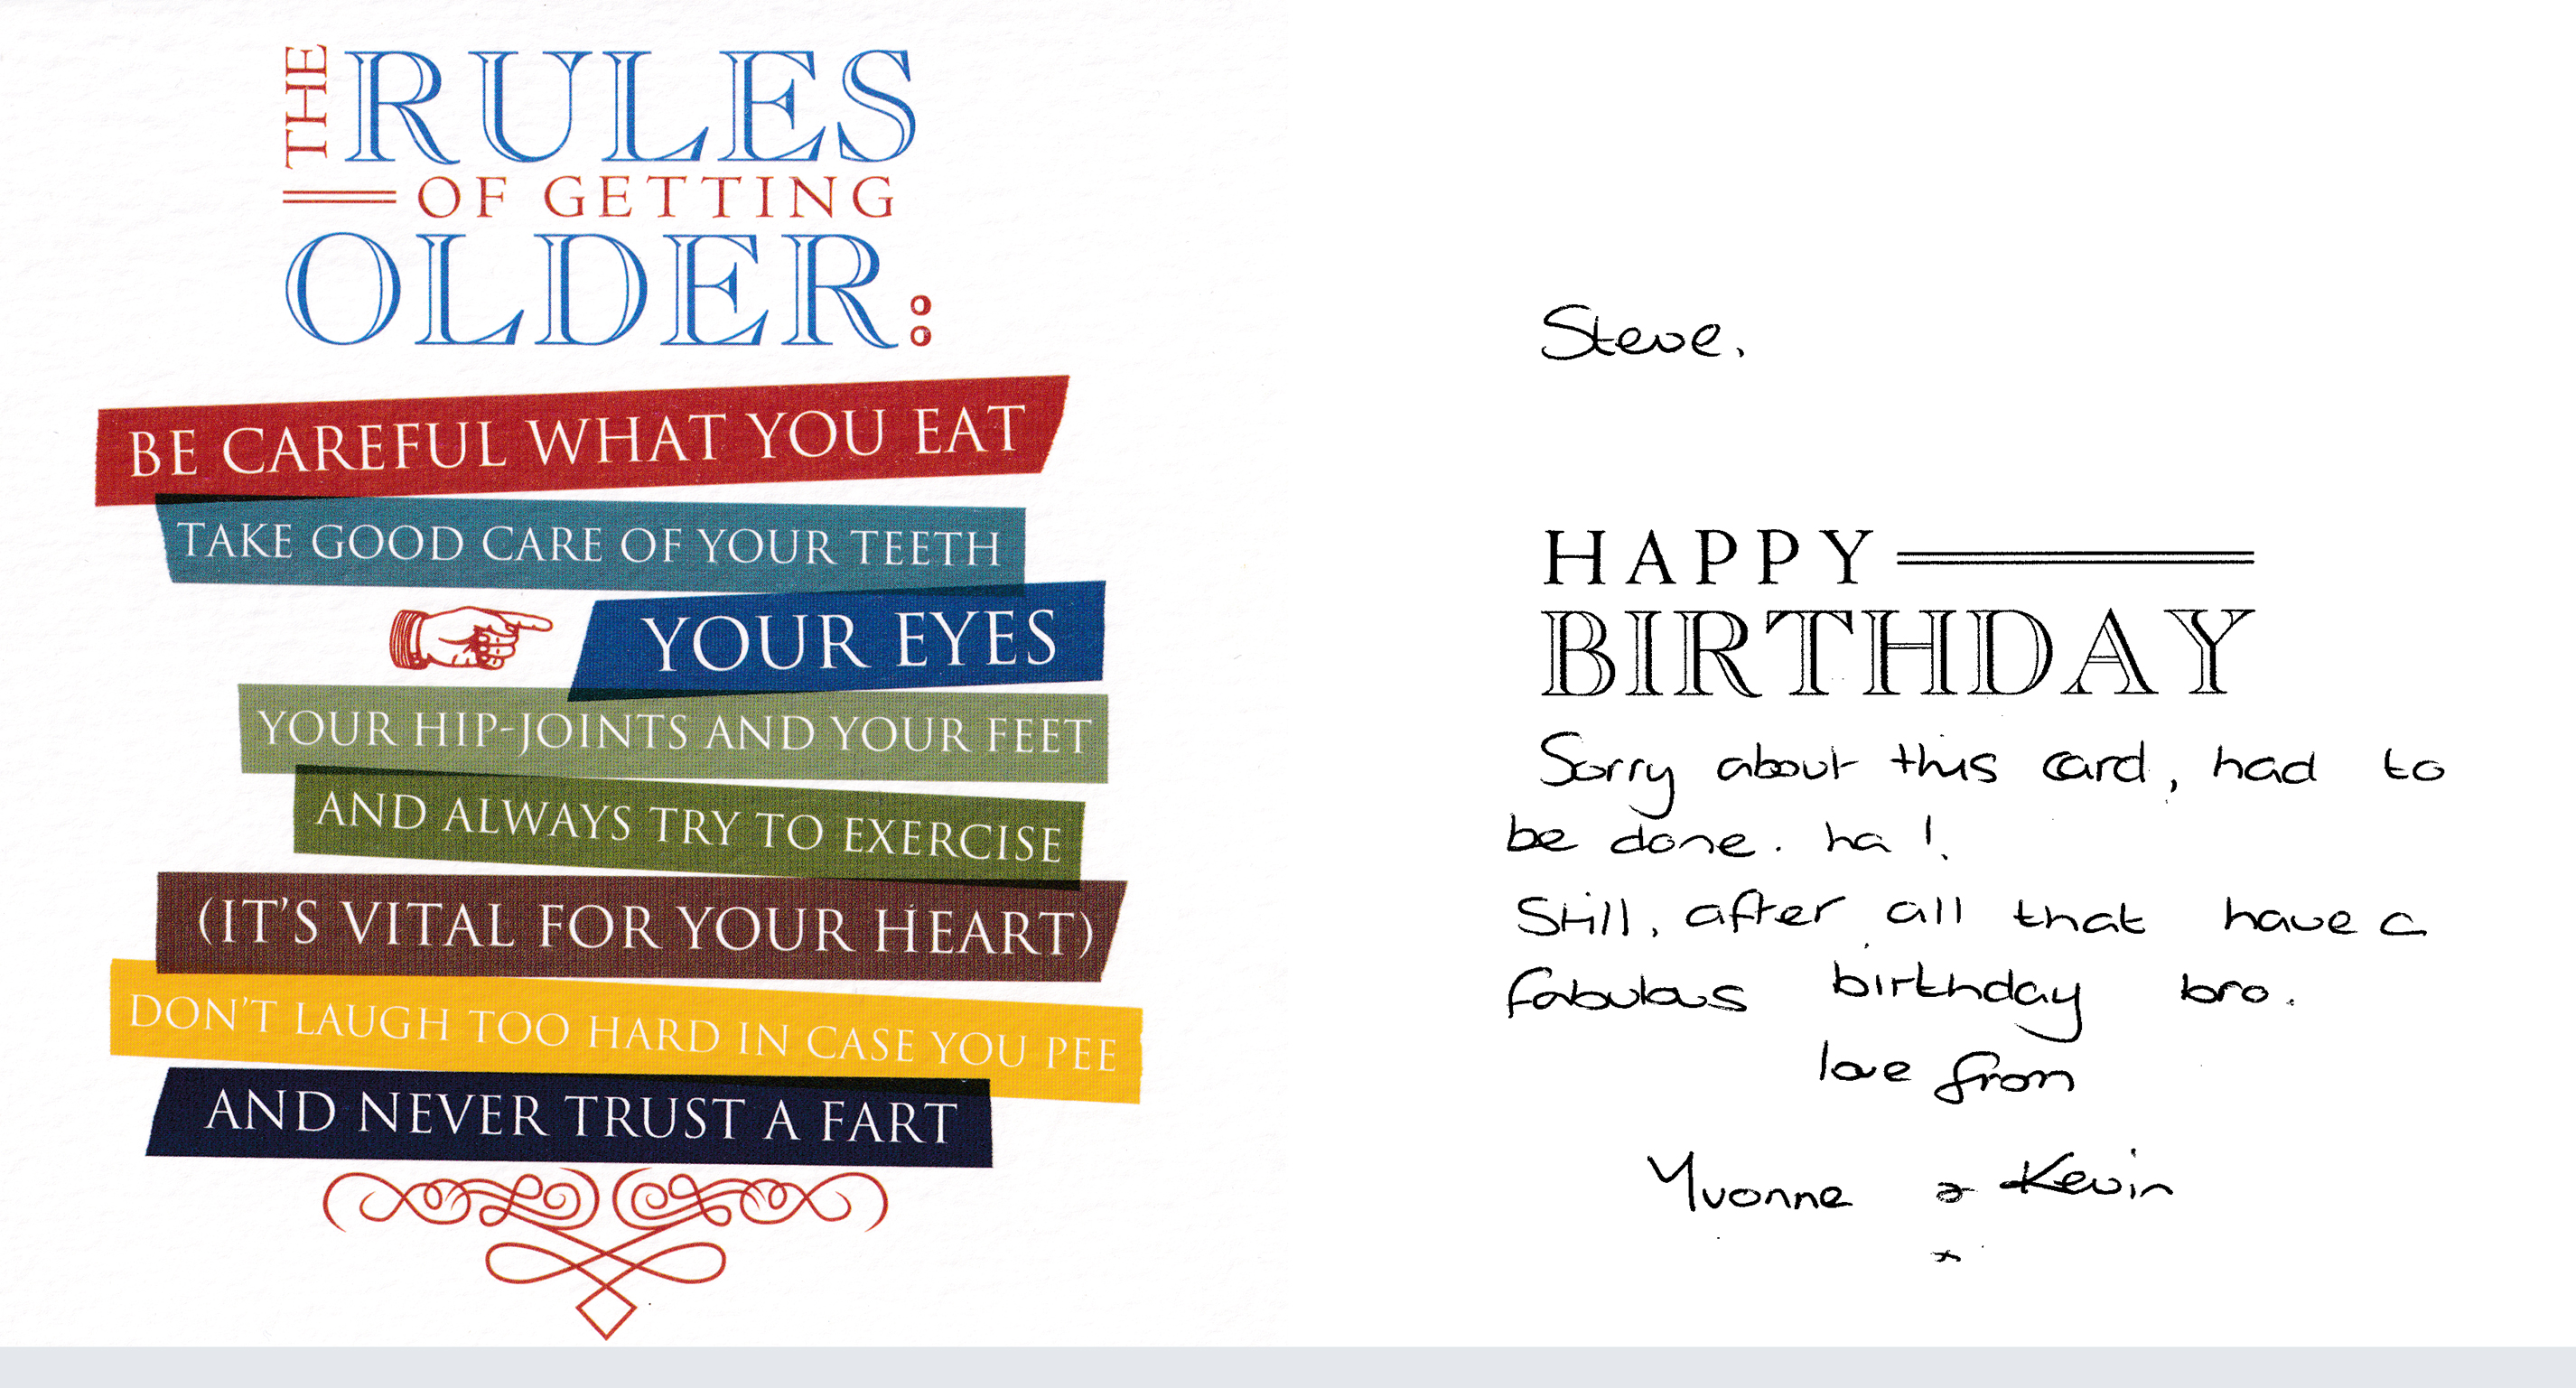 THE RULES
OF GETTING
OLDER:
BE CAREFUL WHAT YOU EAT
TAKE GOOD CARE OF YOUR TEETH
YOUR EYES
YOUR HIP-JOINTS AND YOUR FEET
AND ALWAYS TRY TO EXERCISE
(IT'S VITAL FOR YOUR HEART)
DON'T LAUGH TOO HARD IN CASE YOU PEE
AND NEVER TRUST A FART
Steve.
HAPPY
BIRTHDAY
Sorry about this card, had to
be done. ha!
Still, after all that have a
fabulous birthday bro.
love from
Yvonne & Kevin
x